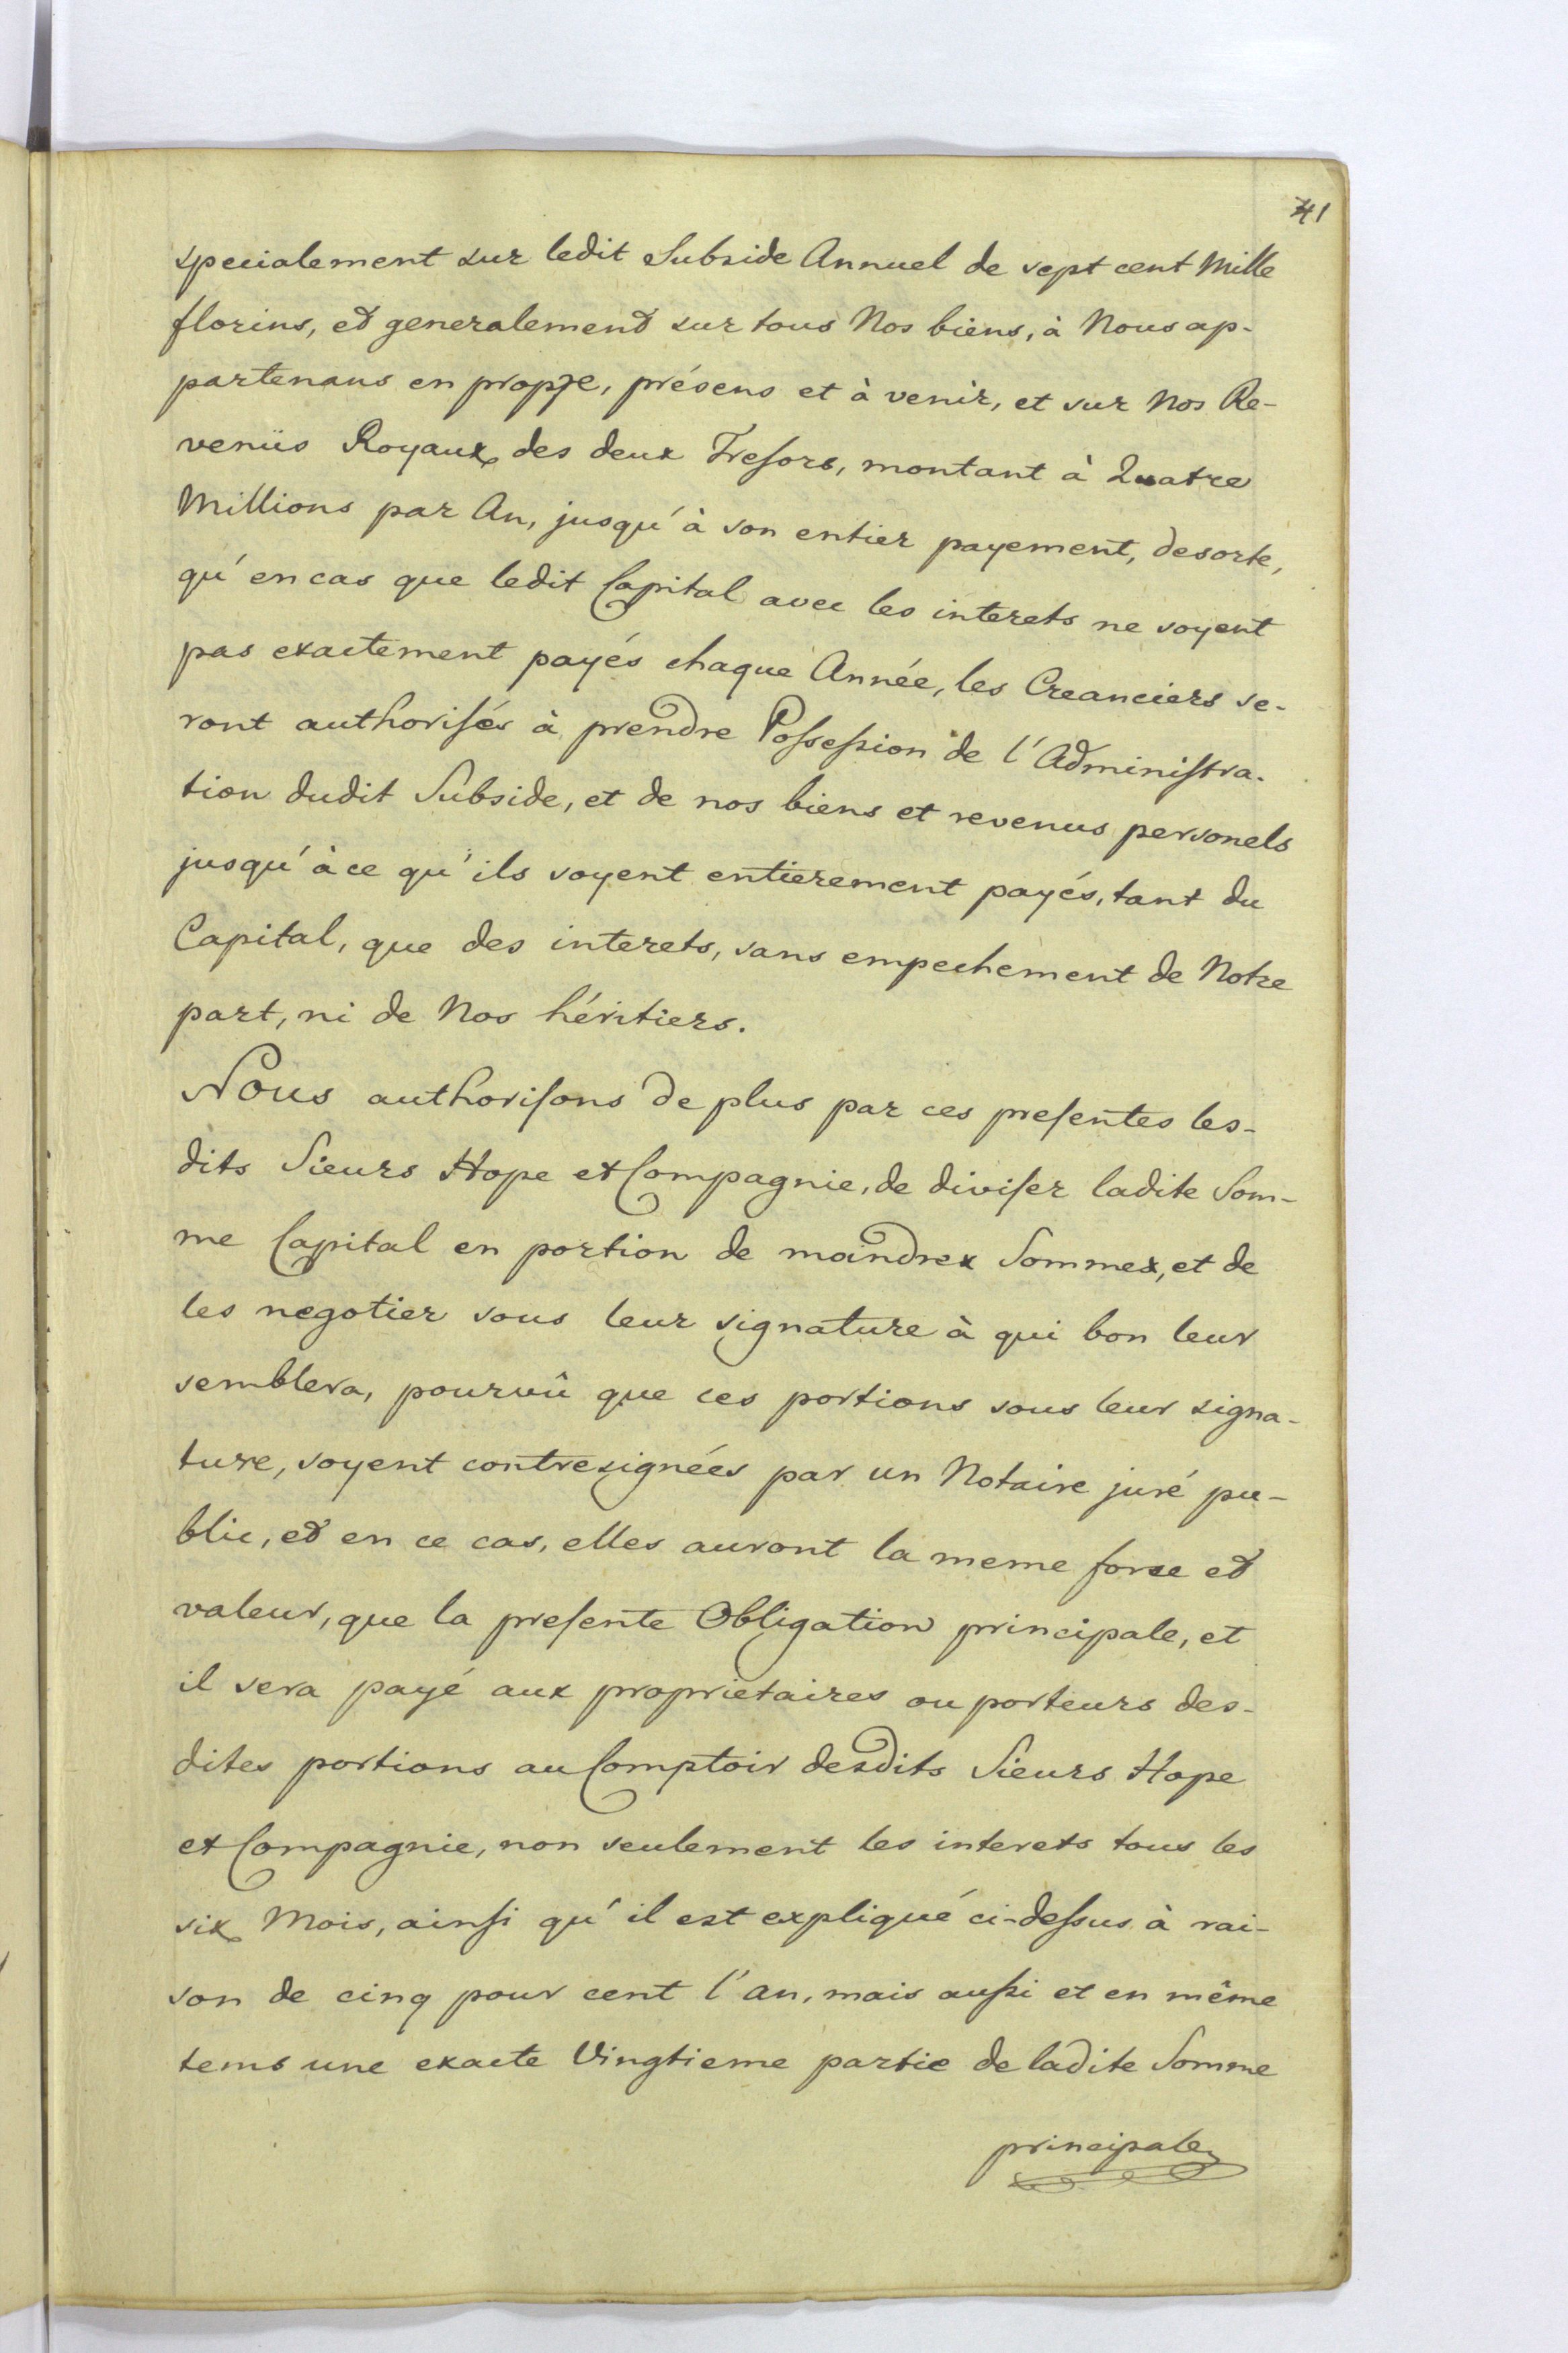 41
specialement sur ledit Subside Annuel de sept cent Mille
florins, et generalement sur tous Nos biens, à Nous ap-
partenans en propre, présens et à venir, et sur Nos Re-
venüs Royaux des deux Tresors, montant à Quatre
Millions par An, jusqu'à son entier payement, desorte,
qu'en cas que ledit Capital avec les interets ne soyent
pas exactement payés chaque Année, les Creanciers se-
ront authorisés à prendre Possession de l'Administra-
tion dudit Subside, et de nos biens et revenus personels
jusqu'à ce qu'ils soyent entierement payés, tant du
Capital, que des interets, sans empechement de Notre
part, ni de Nos héritiers.
Nous authorisons de plus par ces presentes les-
dits Sieurs Hope et Compagnie, de diviser ladite Som-
me Capital en portion de moindres Sommes, et de
les negotier sous leur signature à qui bon leur
semblera, pourvû que ces portions sous leur signa-
ture, soyent contresignées par un Notaire juré pu-
blic, et en ce cas, elles auront la meme force et
valeur, que la presente Obligation principale, et
il sera payé aux proprietaires ou porteurs des-
dites portions au Comptoir desdits Sieurs Hope
et Compagnie, non seulement les interets tous les
six Mois, ainsi qu'il est expliqué ci-dessus à rai-
son de cinq pour cent l'an, mais aussi et en même
tems une exacte Vingtieme partie de ladite Somme
principale